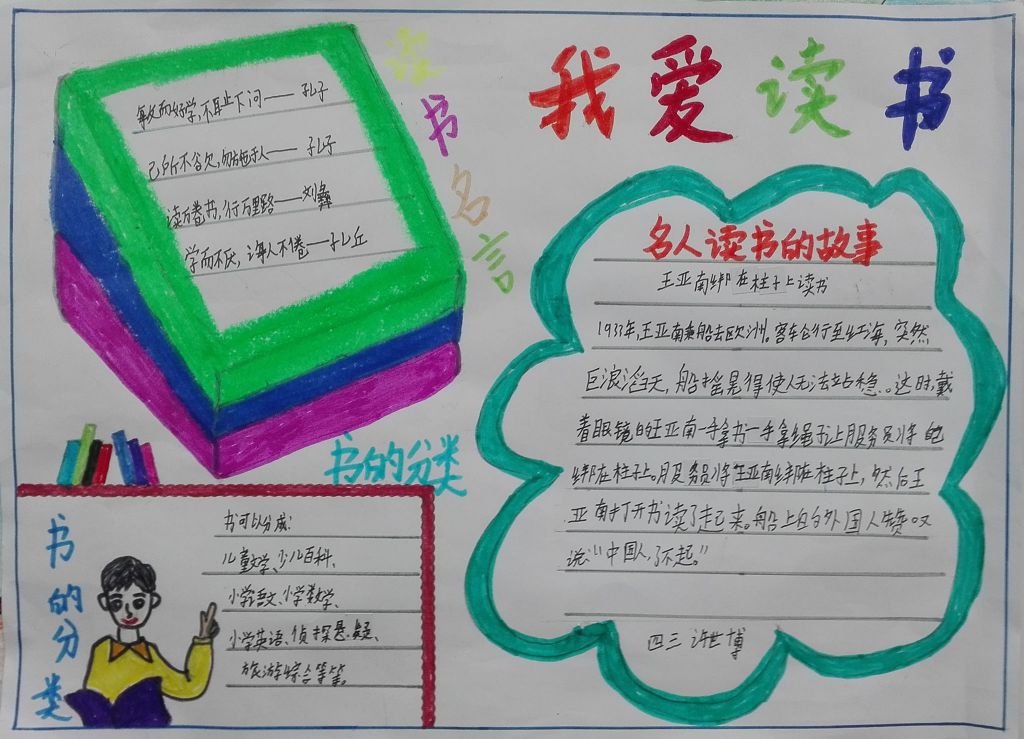 我爱读书
读书名言
敏而好学,不耻下问——孔子
己所不欲,勿施于人——孔子
读万卷书,行万里路——刘彝
学而不厌,诲人不倦——孔丘
名人读书的故事
王亚南绑在柱子上读书
1937年,王亚南乘船去欧洲。客车仓行至红海,突然
巨浪滔天,船摇晃得使人无法站稳。这时,戴
着眼镜的王亚南一手拿书一手拿绳子让服务员将他
绑在柱子上。服务员将王亚南绑在柱子上,然后王
亚南打开书读了起来。船上的外国人赞叹
说“中国人,了不起。”
四三 许世博
书的分类
书的分类
书可以分成:
儿童文学、少儿百科、
小学语文、小学数学、
小学英语、侦探悬疑、
旅游综合等等。